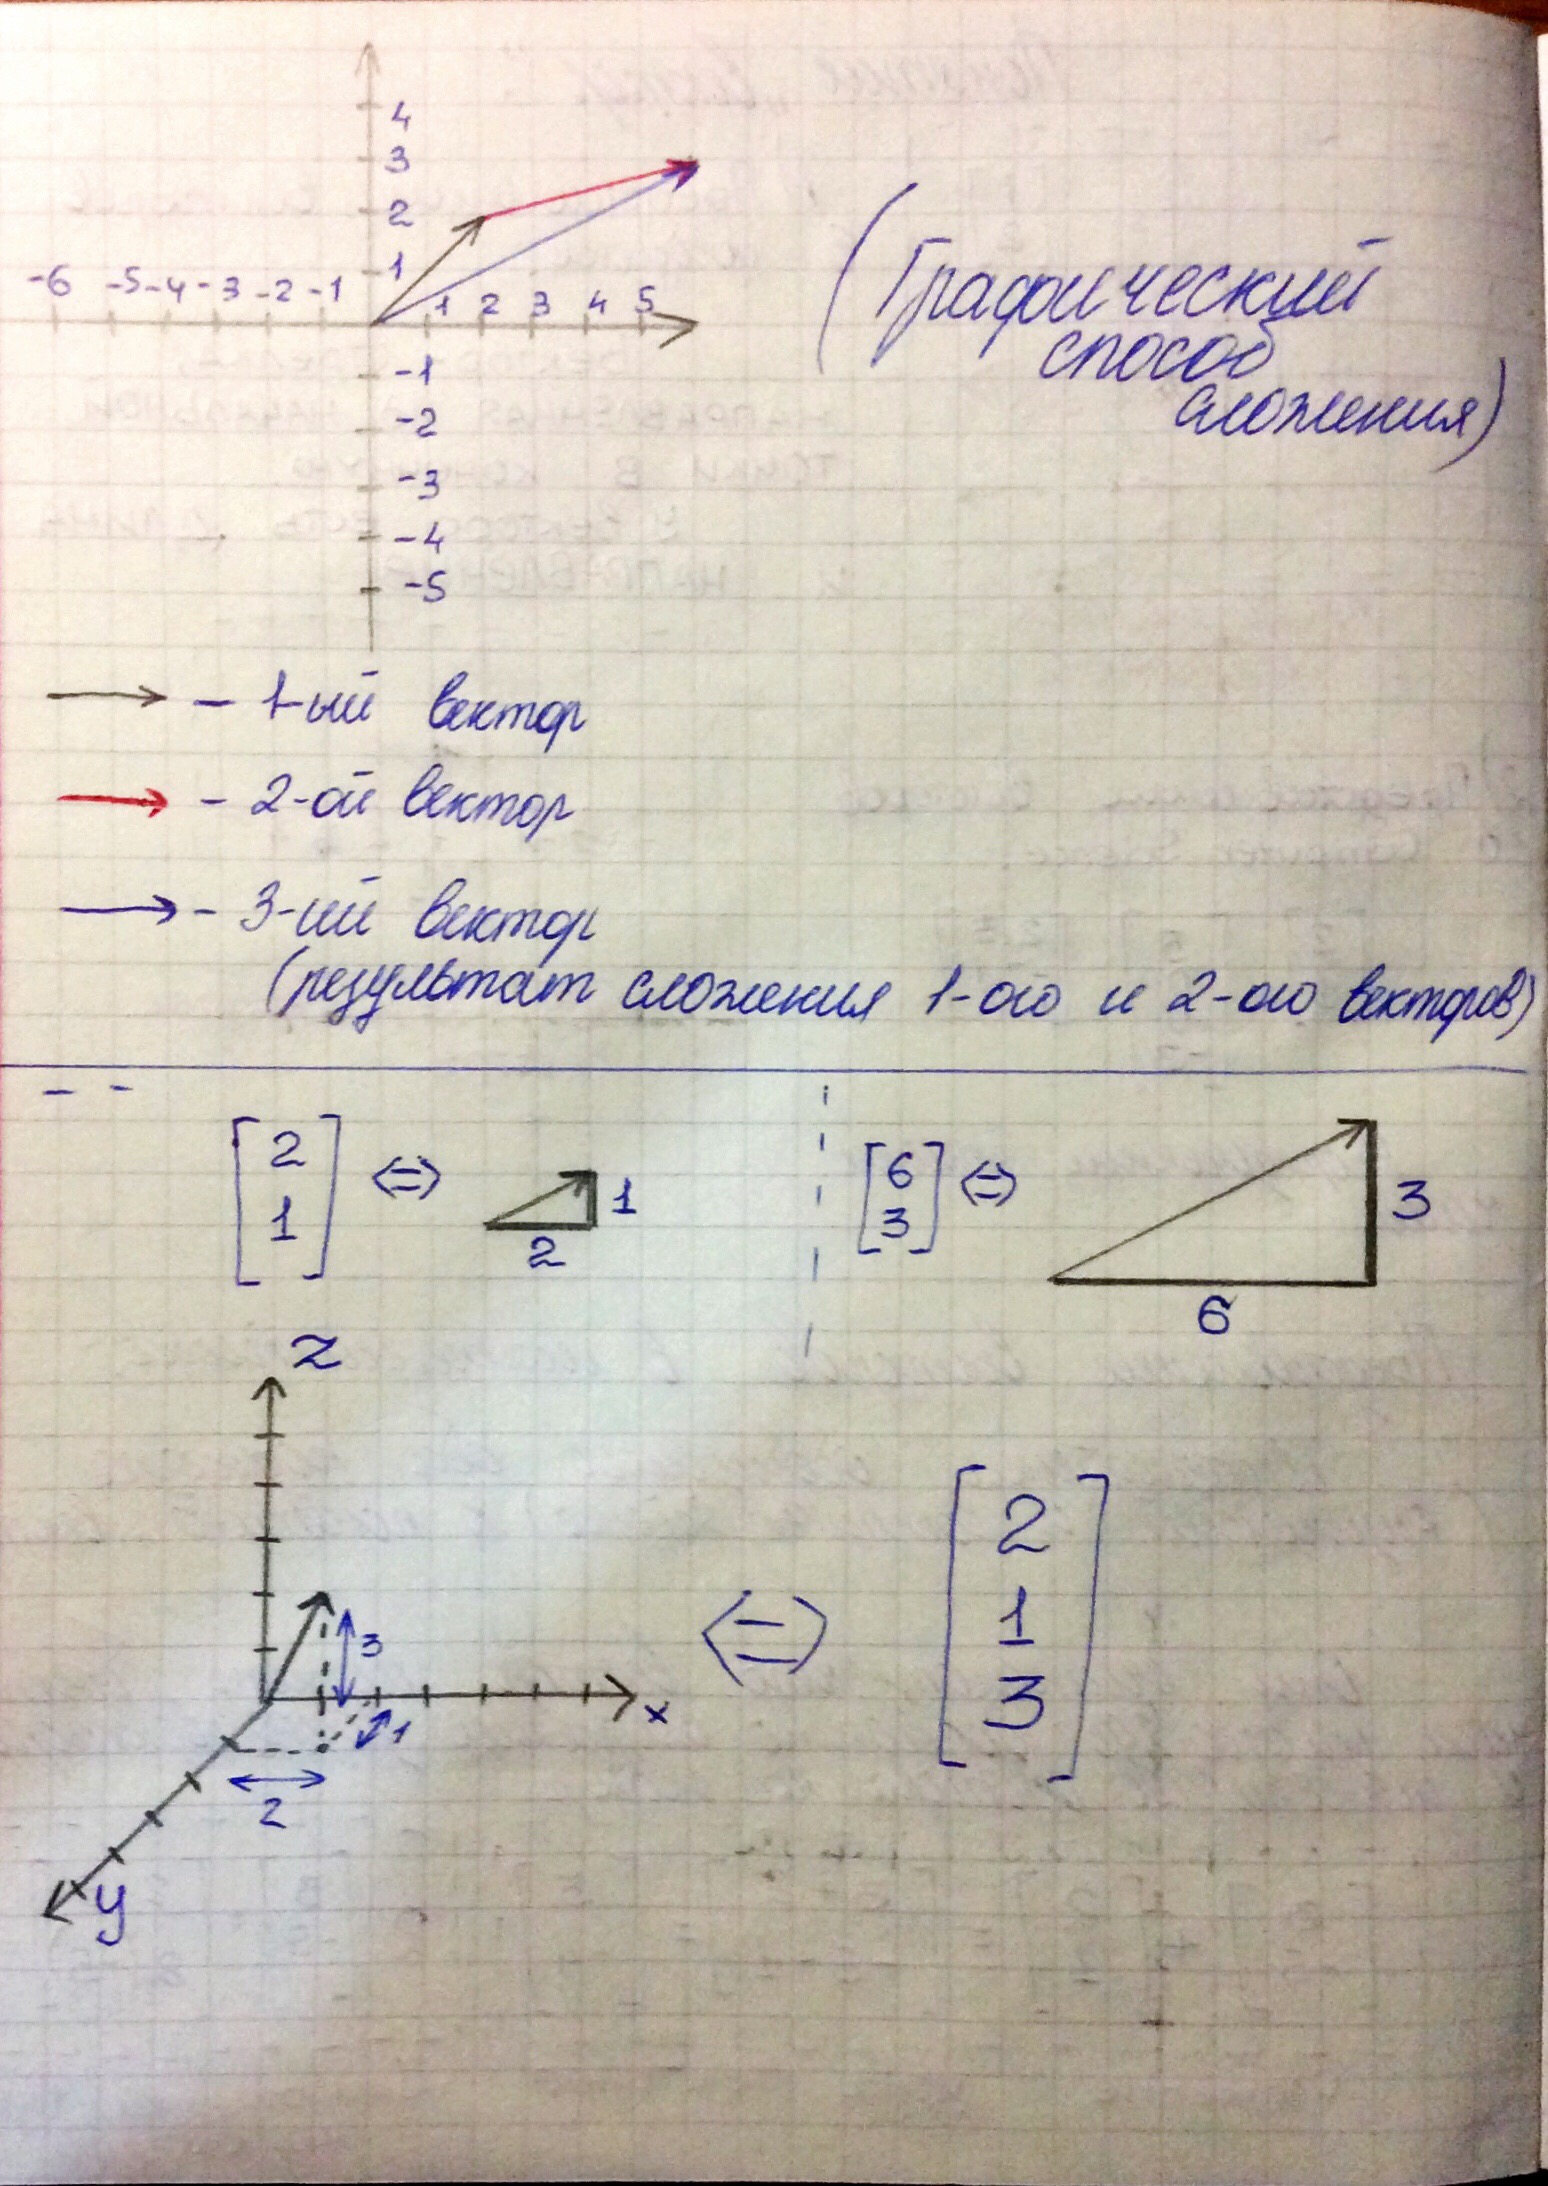 4
3
2
1
-6 -5 -4 -3 -2 -1 1 2 3 4 5
-1
-2
-3
-4
-5
(Графический
способ
сложения)
- 1-ый вектор
- 2-ой вектор
- 3-ий вектор
(результат сложения 1-ого и 2-ого векторов)
[2 1] <=> 1 2
[6 3] <=> 3 6
z
3
x
1
2
y
<=> [2 1 3]